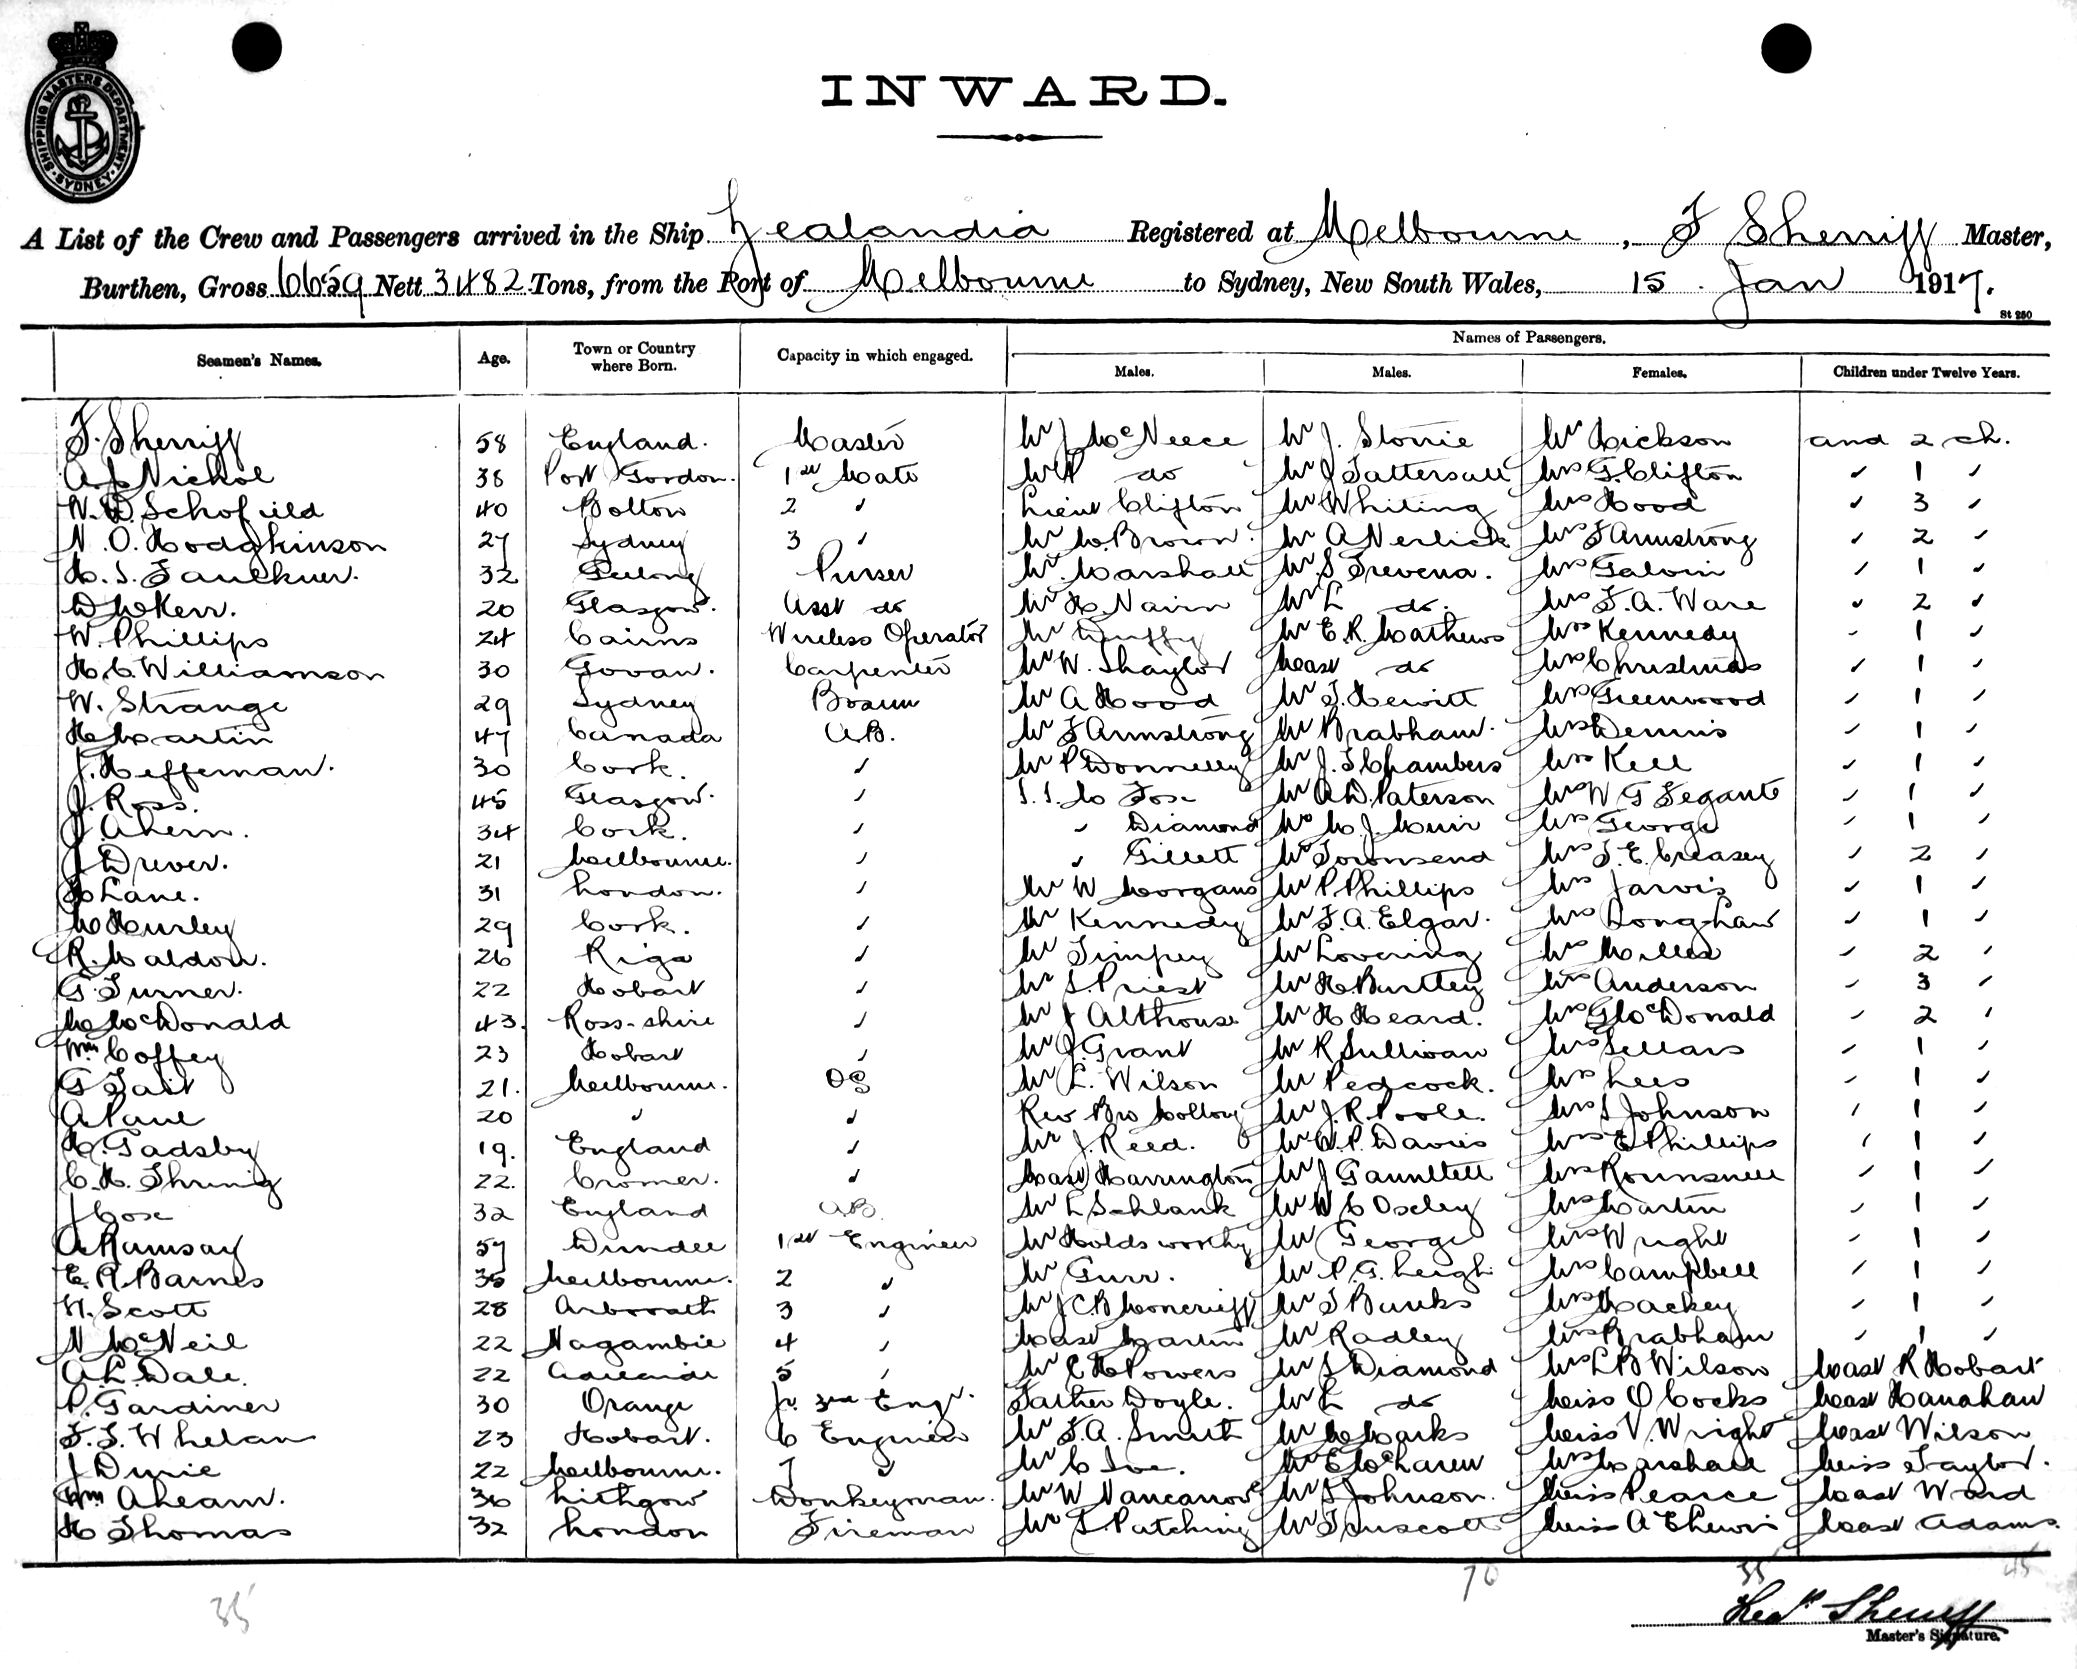 SHIPPING MASTERS DEPARTMENT SYDNEY
INWARD.
A List of the Crew and Passengers arrived in the Ship Zealandia Registered at Melbourne, F Sherriff Master,
Burthen, Gross 6659 Nett 3482 Tons, from the Port of Melbourne to Sydney, New South Wales, 15 Jan 1917.
St 250
Names of Passengers.
Seamen's Names. Age. Town or Country where Born. Capacity in which engaged. Males. Males. Females. Children under Twelve Years.
F. Sherriff 58 England. Master Mr J McNeece Mr J. Storrie Mrs Dickson and 2 ch.
A J Nichol 38 Port Gordon. 1st Mate do Mr J Tattersall Mrs G. Clifton " 1 "
W. D. Schofield 40 Bolton 2 " Lieut Clifton Mr Whiting Mrs Hood " 3 "
N. O. Hodgkinson 27 Sydney 3 " Mr M. Brown. Mr A Nerlick Mrs F Armstrong " 2 "
H. S. Faulkner. 32 Geelong Purser Mr. Marshall Mr. S Trevena. Mrs Galvin " 1 "
D McKerr. 20 Glasgow. Asst do Mr H. Nairn Mr L do. Mrs F. A. Ware " 2 "
W. Phillips 24 Cairns Wireless Operator Mr Duffy Mr E. R. Mathews Mrs Kennedy " 1 "
H. C. Williamson 30 Govan. Carpenter Mr W. Shaylor Mast do Mrs Christmas " 1 "
W. Strange 29 Sydney Bosun Mr A Hood Mr T. Hewitt Mrs Greenwood " 1 "
H Martin 47 Canada A.B. Mr F Armstrong Mr Brabham. Mrs Dennis " 1 "
J. Heffernan. 30 Cork. " Mr P Donnelly Mr J. F Chambers Mrs Kell " 1 "
J. Ross. 45 Glasgow. " Mr A. D. Paterson Mrs W G Segante " 1 "
J. Ahern. 34 Cork. " " Diamond Mr M. J. Muir Mrs George " 1 "
J Drever. 21 Melbourne. " " Gillett Mr Townsend Mrs T. E. Creasey " 2 "
H Lane. 31 London. " Mr W Morgans Mr P Phillips Mrs Jarvis " 1 "
M Hurley 29 Cork. " Mr Kennedy Mr F. A. Elgar. Mrs Longhaw " 1 "
R. Maldon. 26 Riga " Mr Timpey Mr Lovering Mrs Miller " 2 "
G. Turner. 22 Hobart " Mr S. Priest Mr H. Burtley Mrs Anderson " 3 "
M McDonald 43. Ross-shire " Mr J Althouse Mr H Heard. Mrs G McDonald " 2 "
Wm Coffey 23 Hobart " Mr J. Grant Mr R Sullivan Mrs Sellars " 1 "
G Tait 21. Melbourne. OS Mr L. Wilson Mr Pedcock. Mrs Lees " 1 "
A Paul 20 " " Rev Bro Molloy Mr J. R. Poole. Mrs S Johnson " 1 "
H. Gadsby 19. England " Mr J. Reed. Mr W. P. Davies Mrs E Phillips " 1 "
C. H. Thring 22. Cromer. " Mast Harrington Mr J Gauntlett Mrs Rounsnell " 1 "
J Cox 32 England A.B. Mr L Schlank Mr W C Oxley Mrs Martin " 1 "
A Ramsay 57 Dundee 1st Engineer Mr Holdsworthy Mr George Mrs Wright " 1 "
E. R. Barnes 35 Melbourne. 2 " Mr Gurr. Mr P. G. Leigh Mrs Campbell " 1 "
W. Scott 28 Arbroath 3 " Mr J C B Moncrieff Mr S Banks Mrs Mackey " 1 "
N McNeil 22 Nagambie 4 " Mast Martin Mr Radley Mrs Brabham " 1 "
A. L. Dale. 22 Adelaide 5 " Mr C H Powers Mr S Diamond Mrs L B Wilson Mast R Hobart
P. Gardiner 30 Orange Jr. 3rd Engr. Father Doyle. Mr L do Miss O Cocks Mast Hanahan
F. T. Whelan 23 Hobart. 6 Engineer Mr F. A. Smith Mr M Marks Miss V. Wright Mast Wilson
J Durie 22 Melbourne. 7 " Mr C Ive. Mr E McLaren Mrs Marshall Miss Taylor.
Wm Ahearn. 36 Lithgow Donkeyman. Mr W Vancanove Mr S Johnson. Miss Pearce Mast Ward
H Thomas 32 London Fireman Mr S. Patching Mr Truscott Miss A E Lewis Mast Adams.
35 70 35 45
Fredk Sherriff
Master's Signature.